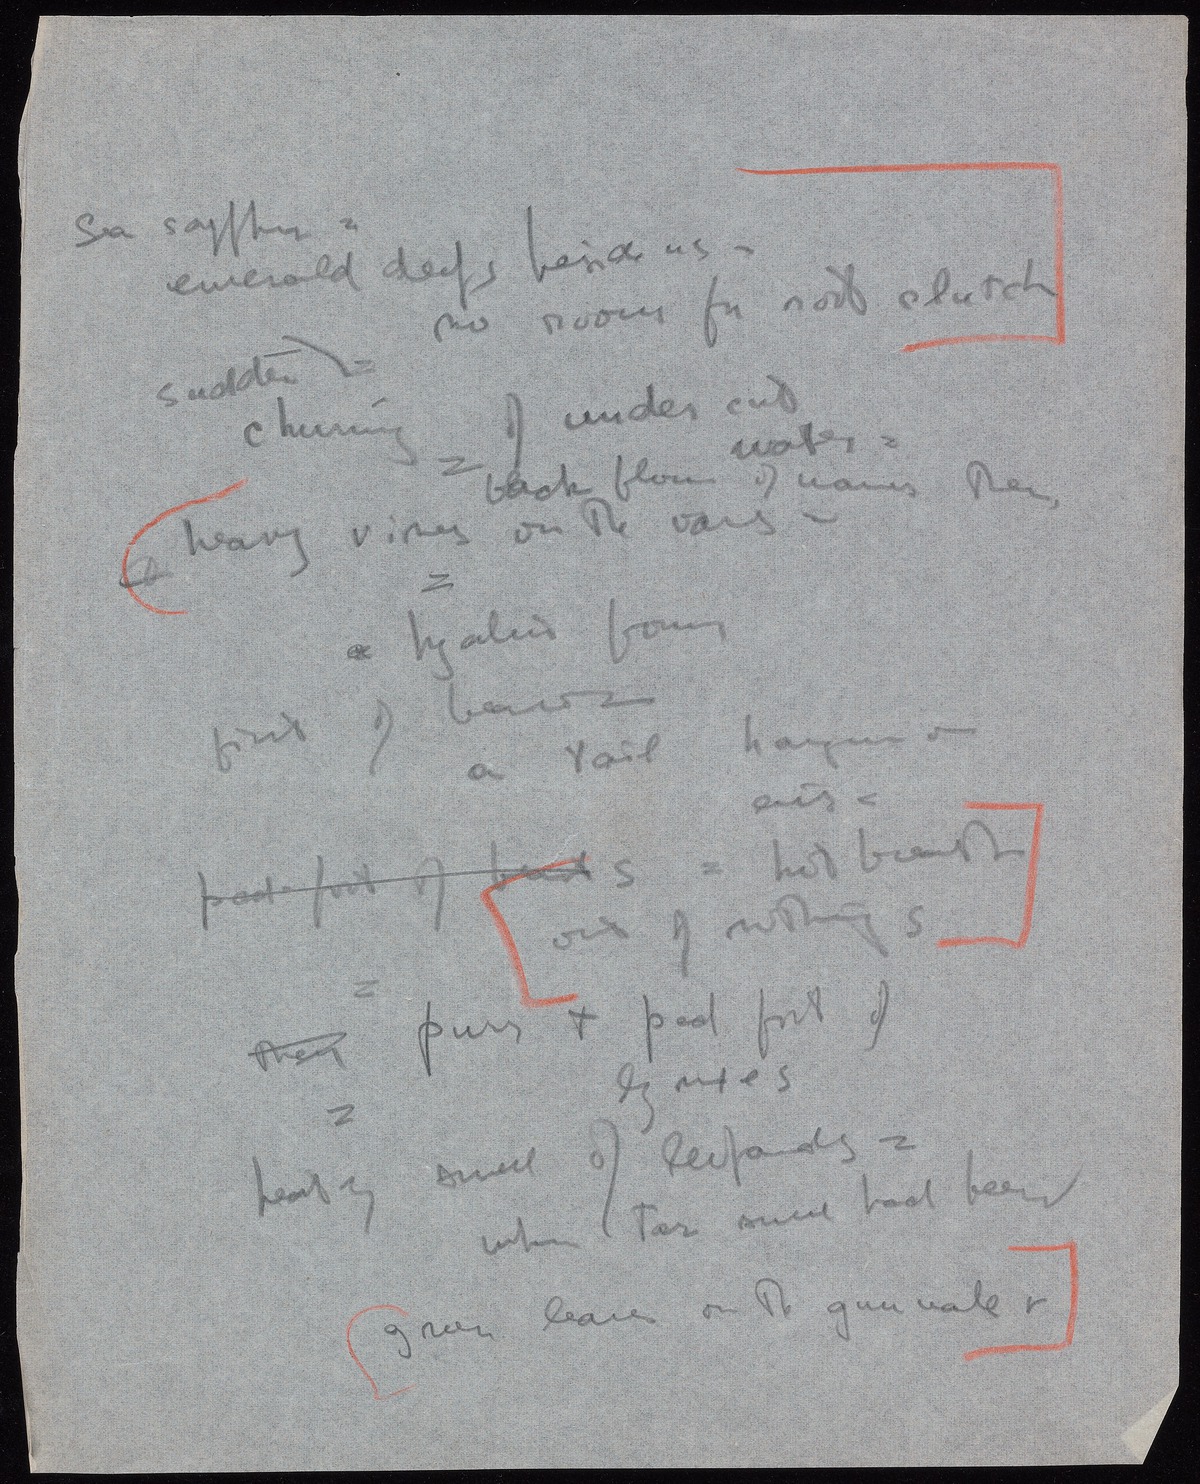 Sea sapphire =
emerald deeps beside us -
no room for root clutch
sudden =
churning of under cut
water =
= back flow of waves then,
heavy vines on the oars -
=
a hyaline
foot of beasts
a tail
air =
pad foot of beasts = hot breath
out of nothing s
=
then purrs + pad foot of
lynxes
=
heavy smell of leopards =
when tar smell had been
green leaves on the gunwale r